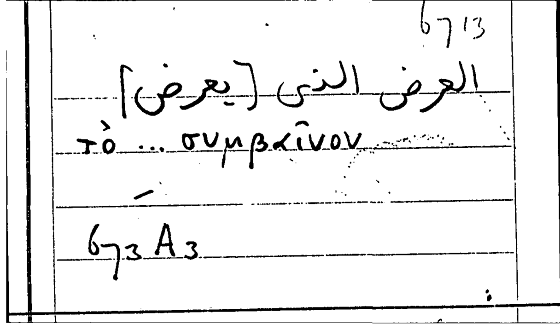 6713
العرض الذى [يعرض]
τὸ ... συμβαῖνον
673 A 3